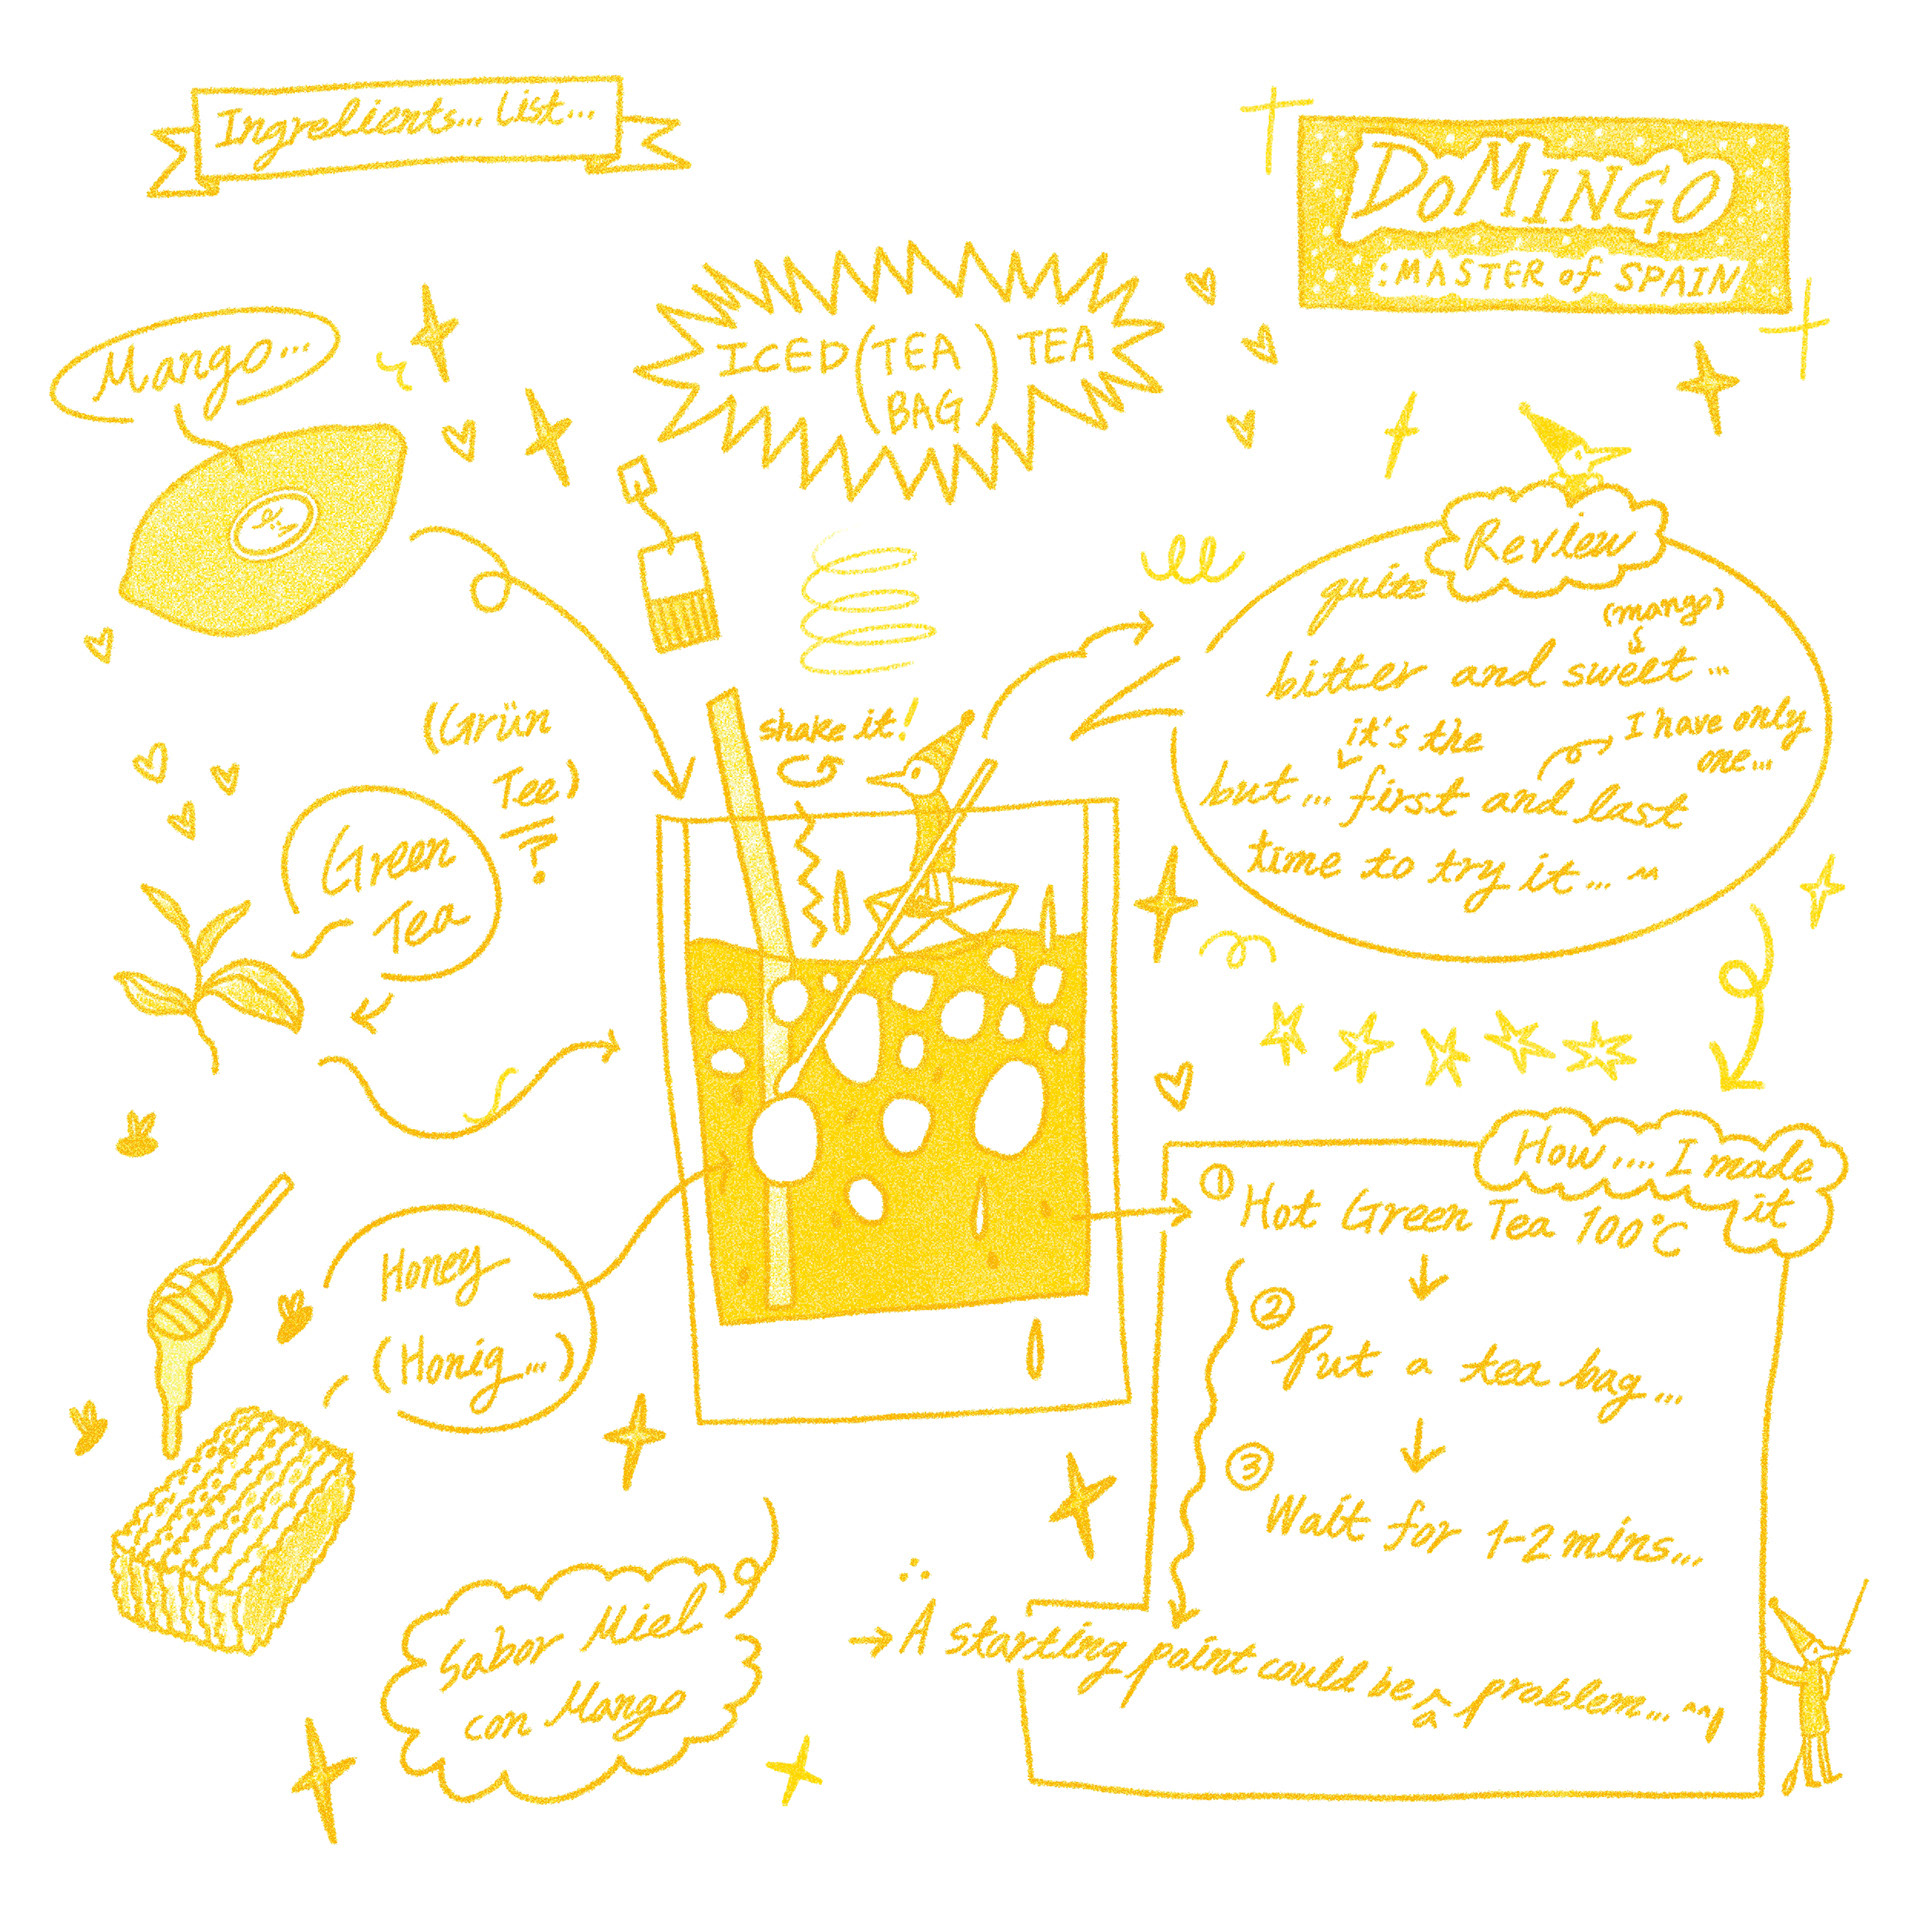 Ingredients... List...
DoMINGO
:MASTER of SPAIN
ICED (TEA BAG) TEA
Mango...
Review
quite
(mango)
bitter and sweet...
it's the
I have only
one...
but... first and last
time to try it... ^^
shake it!
(Grün
Tee)
?
Green
Tea
How.... I made
it
① Hot Green Tea 100°C
② Put a tea bag...
③ Wait for 1-2 mins...
Honey
(Honig...)
Sabor Miel
con Mango
∴
→ A starting point could be a problem... ^^;